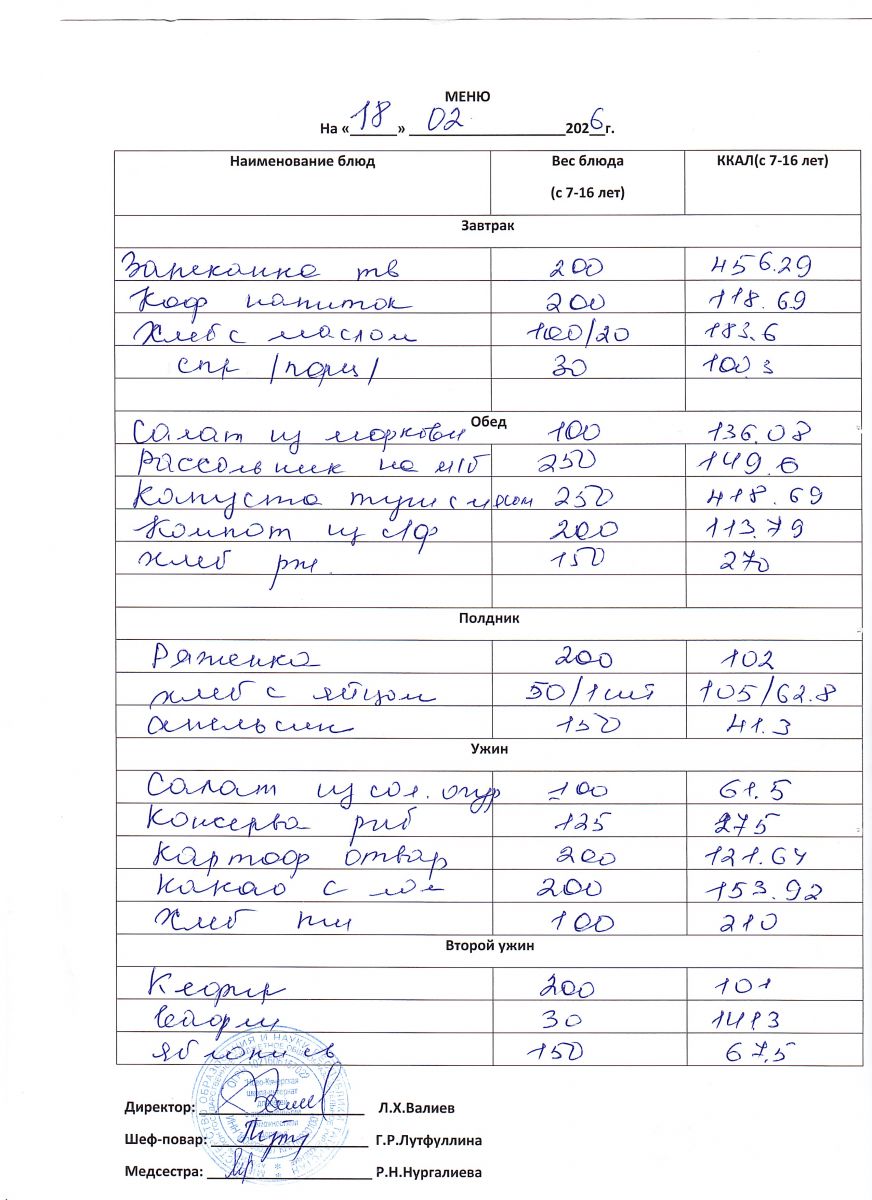 МЕНЮ
На «18» 02 2026 г.
Наименование блюд Вес блюда (с 7-16 лет) ККАЛ(с 7-16 лет)
Завтрак
Запеканка тв 200 456.29
Коф напиток 200 118.69
Хлеб с маслом 100/20 183.6
сыр /порц/ 30 100.3
Обед
Салат из моркови 100 136.08
Рассольник на м/б 250 149.6
Капуста туш с мясом 250 418.69
Компот из с/ф 200 113.79
хлеб рж. 150 270
Полдник
Ряженка 200 102
хлеб с яйцом 50/1шт 105/62.8
апельсин 150 41.3
Ужин
Салат из сол. огур 100 61.5
Консерва рыб 125 275
Картоф отвар 200 121.64
Какао с мол 200 153.92
Хлеб пш 100 210
Второй ужин
Кефир 200 101
Вафли 30 1413
яблоки св 150 67,5
Директор: Л.Х.Валиев
Шеф-повар: Г.Р.Лутфуллина
Медсестра: Р.Н.Нургалиева